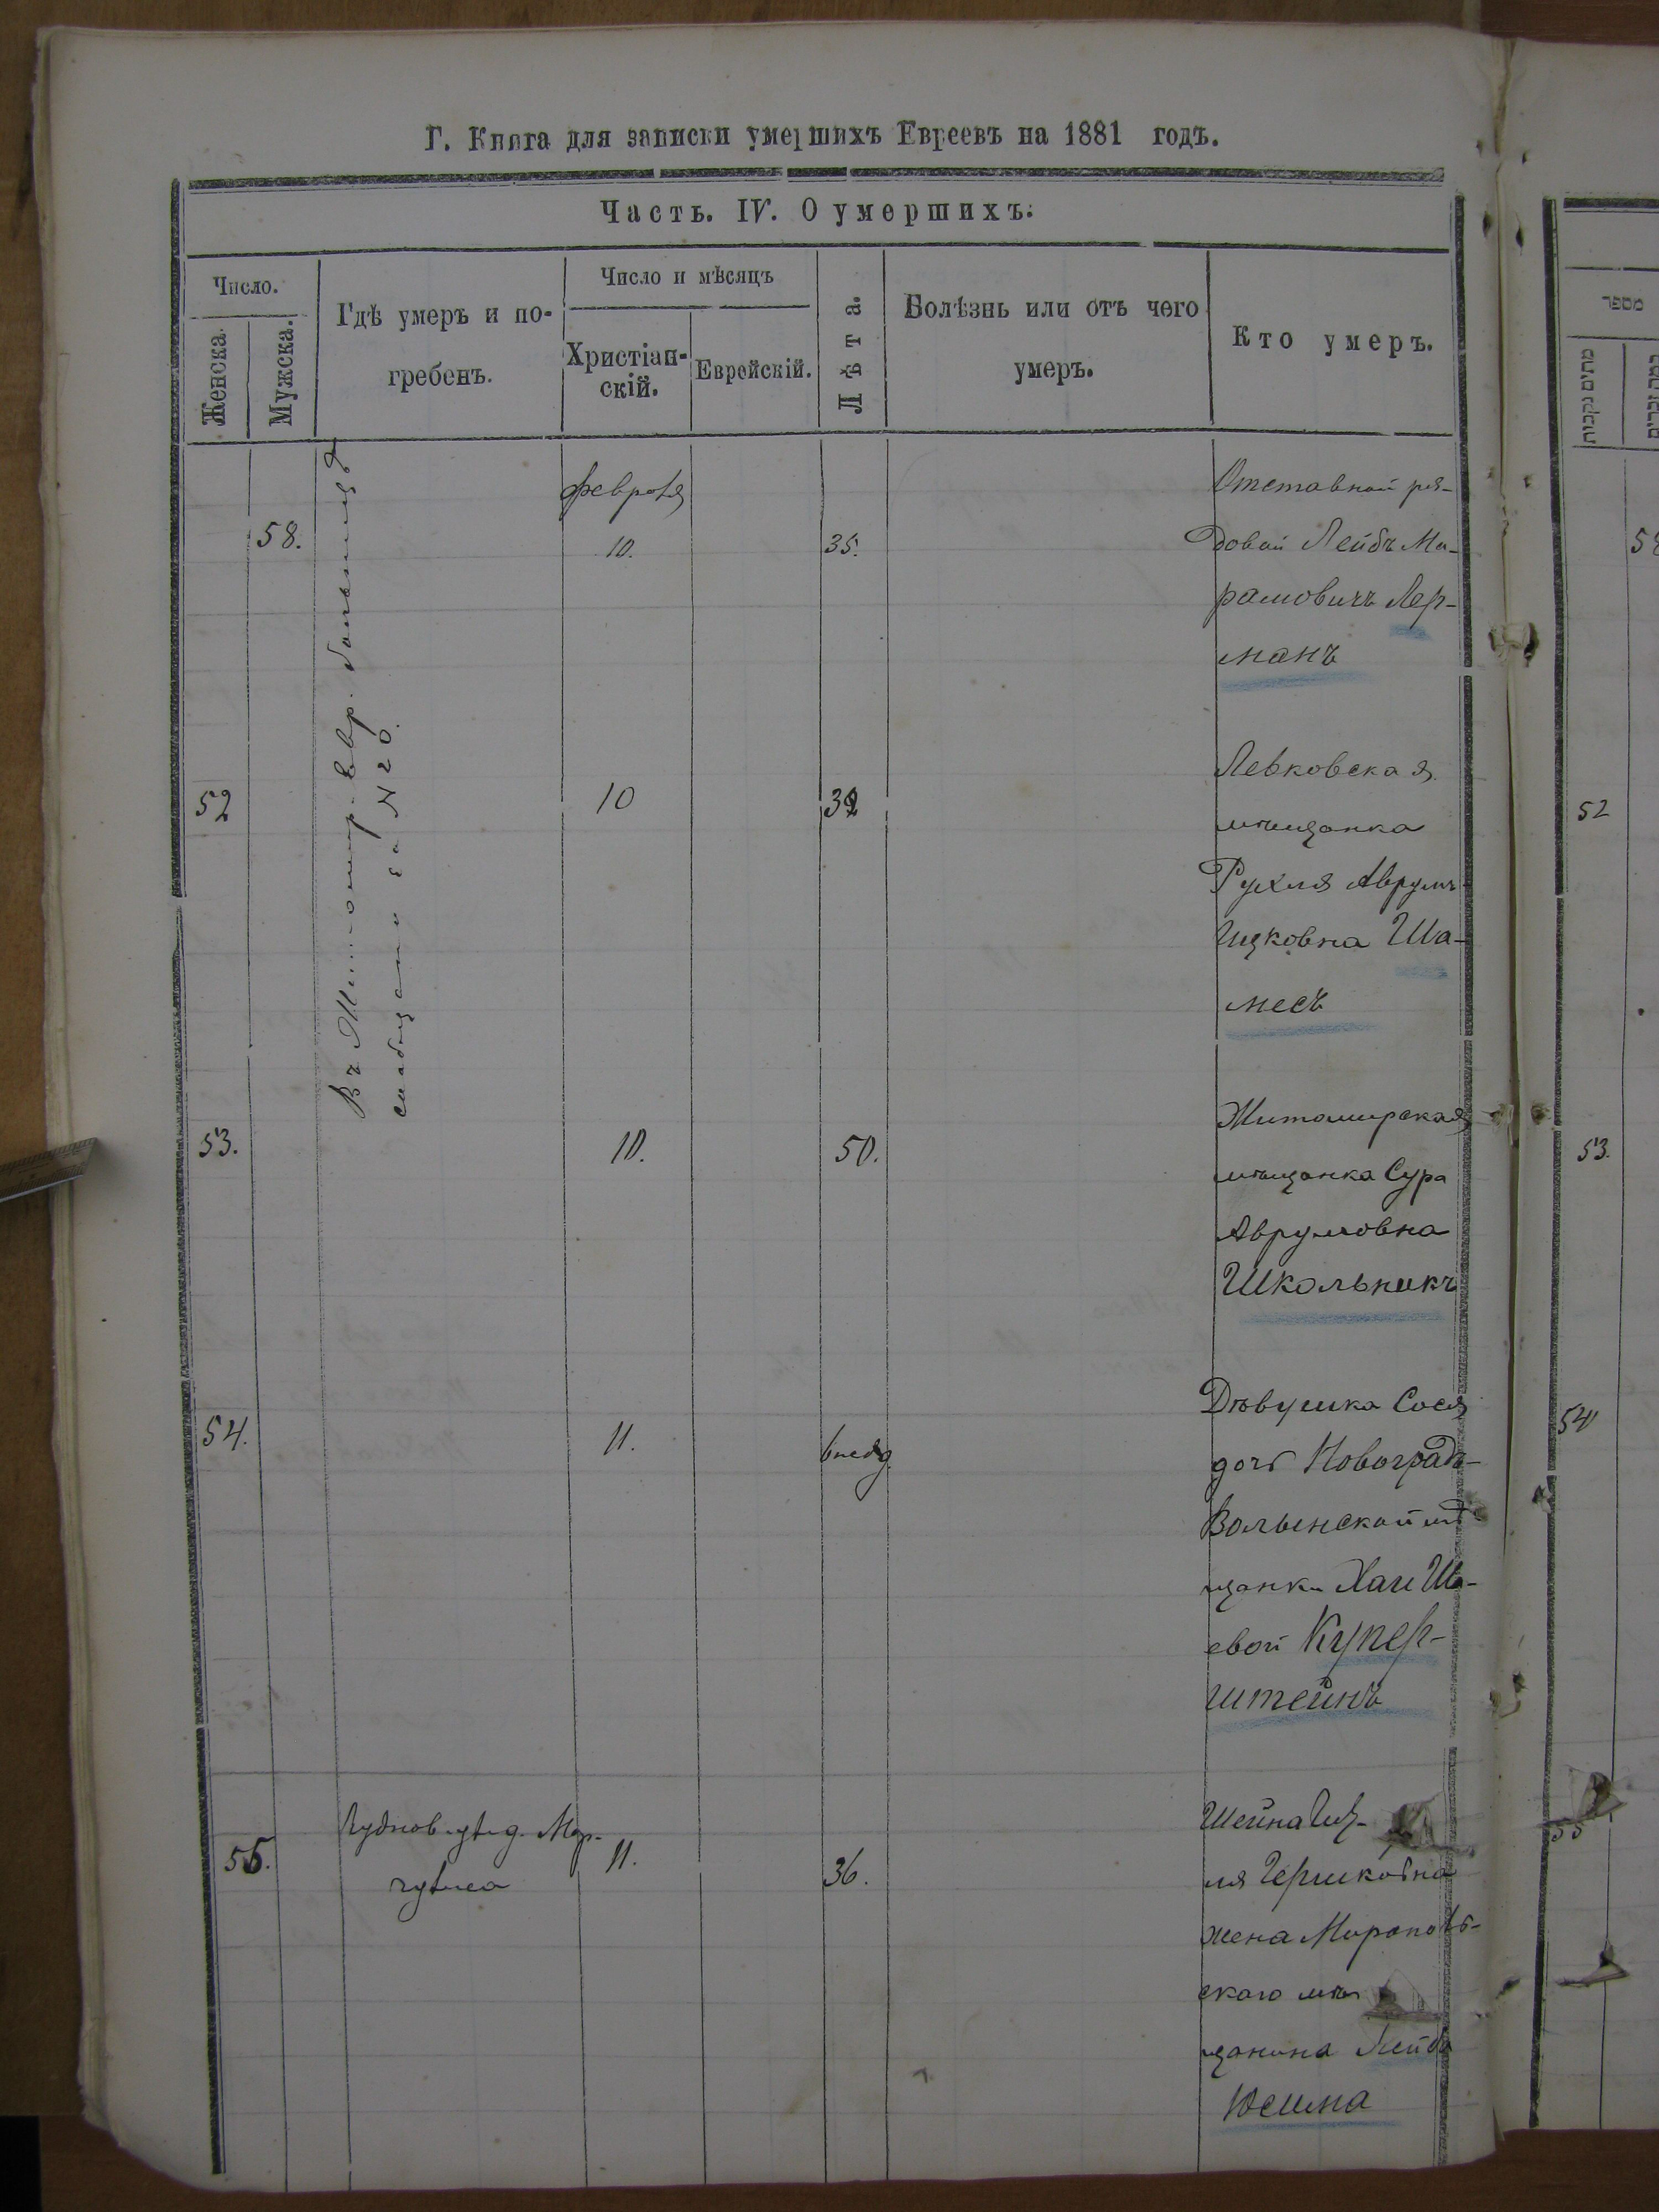 Г. Книга для записки умершихъ Евреевъ на 1881 годъ.
Часть. IV. О умершихъ.
Число.
Женска.
Мужска.
Гдѣ умеръ и по-
гребенъ.
Число и мѣсяцъ
Христіан-
скій.
Еврейскій.
Лѣта.
Болѣзнь или отъ чего
умеръ.
Кто умеръ.
מספר
Въ Житомир. Евр. больницѣ
сообщен за N 20.
февраля
58.
10.
35.
Отставной ря-
довой Лейбъ Ма-
рамовичъ Лер-
манъ
52
10
Левковская
мѣщанка
Рухля Аврумъ
Ицковна Ша-
месъ
52
53.
10.
50.
Житомирская
мѣщанка Сура
Аврумовна
Школьникъ
53.
54.
11.
Дѣвушка Сося
дочь Новоградъ-
Волынской мѣ
щанки Хаи Ша-
евой Купер-
штейнъ
54
55.
11.
36.
Шейна
ля Гершковна
жена Мирополь-
скаго мѣ
щанина Лейба
Юсима
55